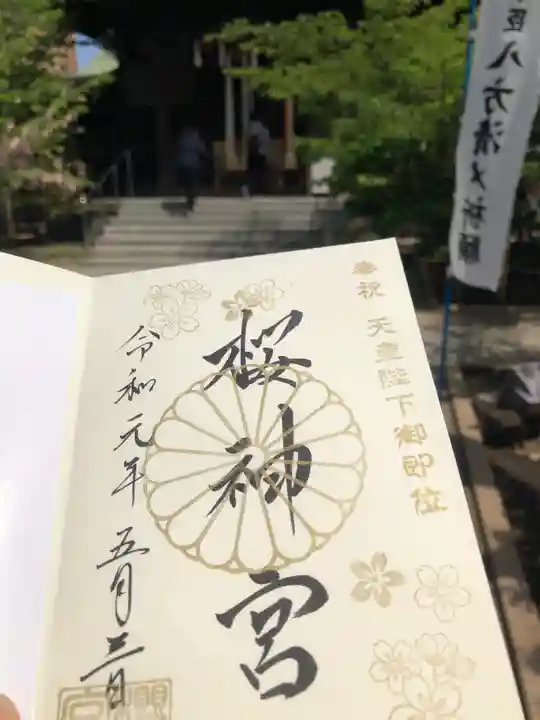 八方清メ祈願
奉祝 天皇陛下御即位
櫻神宮
令和元年 五月三日